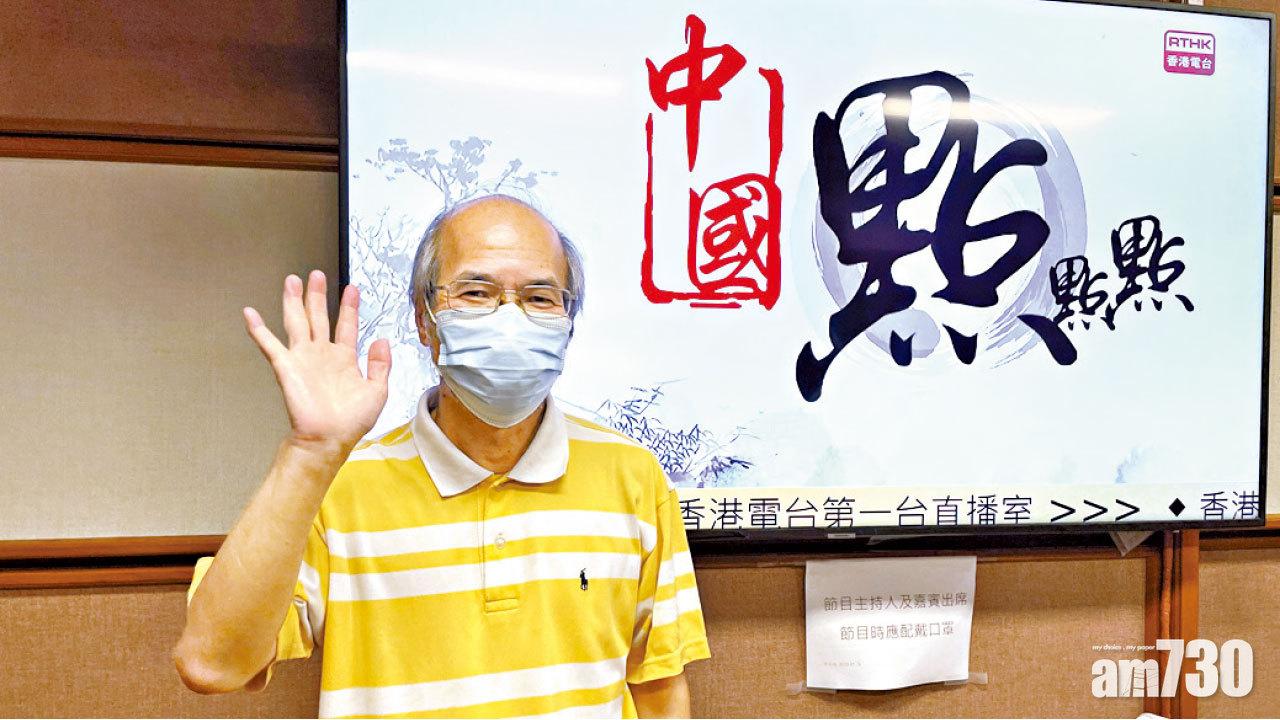 RTHK
香港電台
中國點點點
香港電台第一台直播室 >>> ◆ 香港
節目主持人及嘉賓出席
節目時應配戴口罩
my choice . my paper
am730